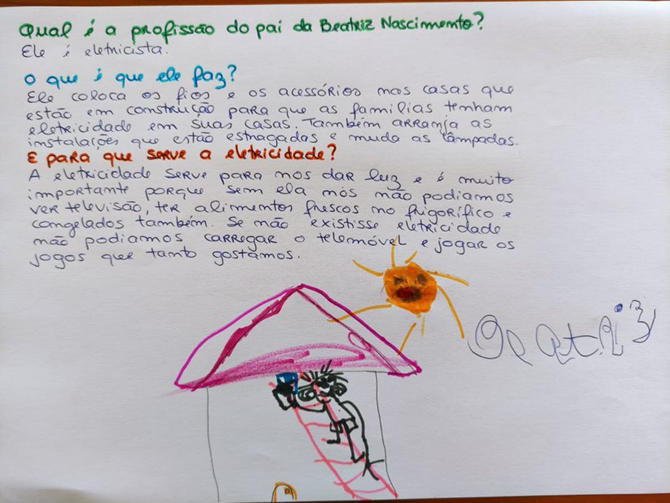 Qual é a profissão do pai da Beatriz Nascimento?
Ele é eletricista.
O que é que ele faz?
Ele coloca os fios e os acessórios nas casas que
estão em construção para que as famílias tenham
eletricidade em suas casas. Também arranja as
instalações que estão estragadas e muda as lâmpadas.
E para que serve a eletricidade?
A eletricidade serve para nos dar luz e é muito
importante porque sem ela nós não podíamos
ver televisão, ter alimentos frescos no frigorífico e
congelados também. Se não existisse eletricidade
não podíamos carregar o telemóvel e jogar os
jogos que tanto gostamos.
Beatriz